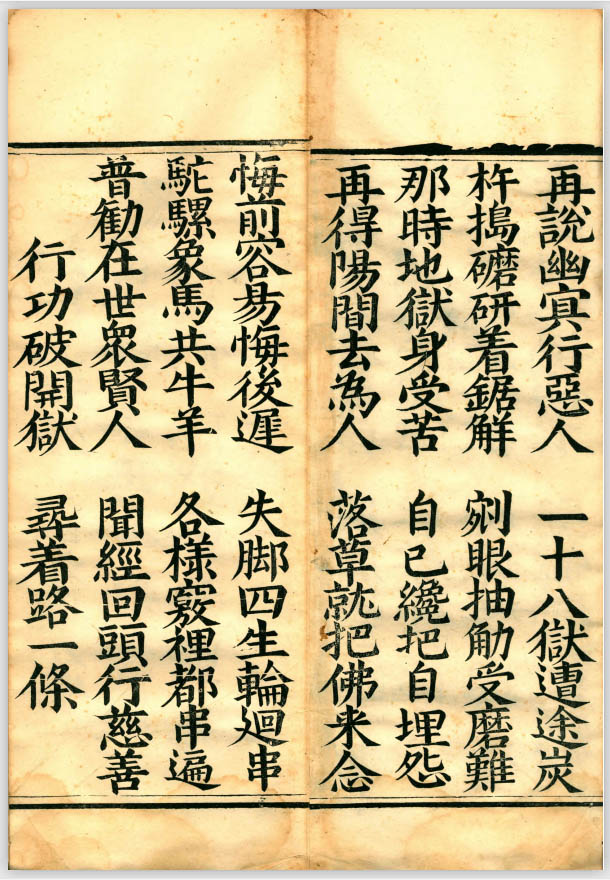 再說幽冥行惡人　一十八獄遭途炭
杵搗礳研着鋸解　剜眼抽觔受磨難
那時地獄身受苦　自已纔把自埋怨
再得陽間去為人　落草就把佛来念
悔前容易悔後遲　失脚四生輪廻串
駝騾象馬共牛羊　各樣竅裡都串遍
普勸在世眾賢人　聞經回頭行慈善
行功破開獄　尋着路一條